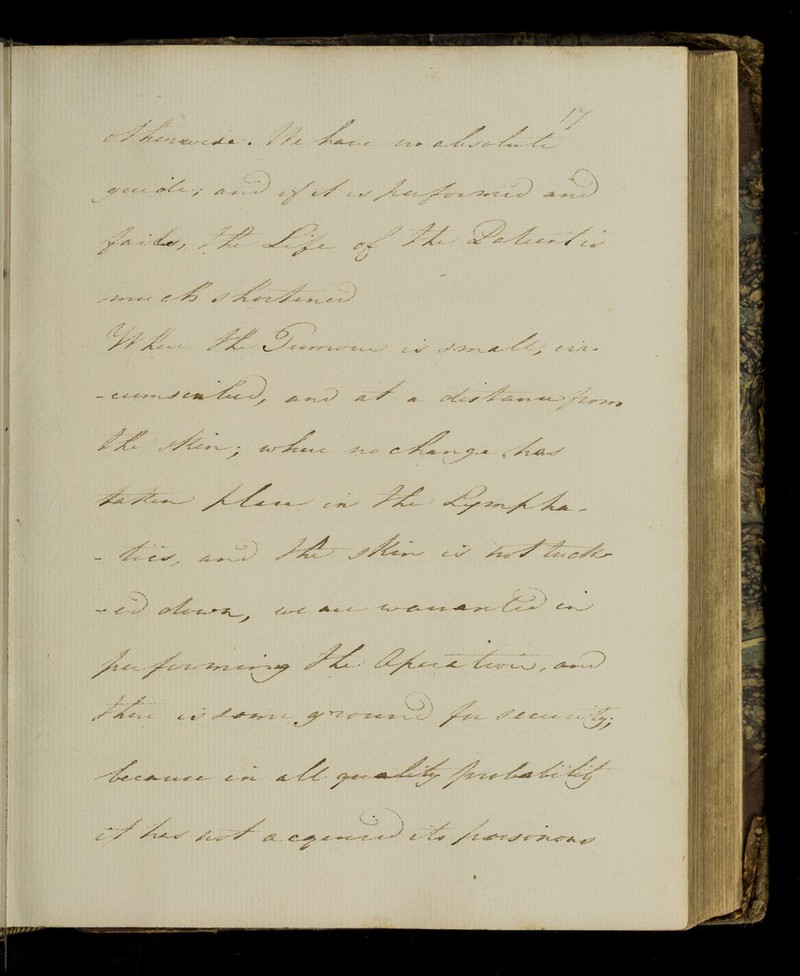 17
otherwise. We have no absolute
guide; and if it is performed and
fails, the Life of the Patient is
much shortened
When the Tumour is small, cir-
-cumscribed, and at a distance from
the skin; where no change has
taken place in the Lympha-
-tics, and the skin is not tuck-
-ed down, we are warranted in
performing the Operation, and
there is some ground for security;
because in all quality probability
it has not acquired its poisonous